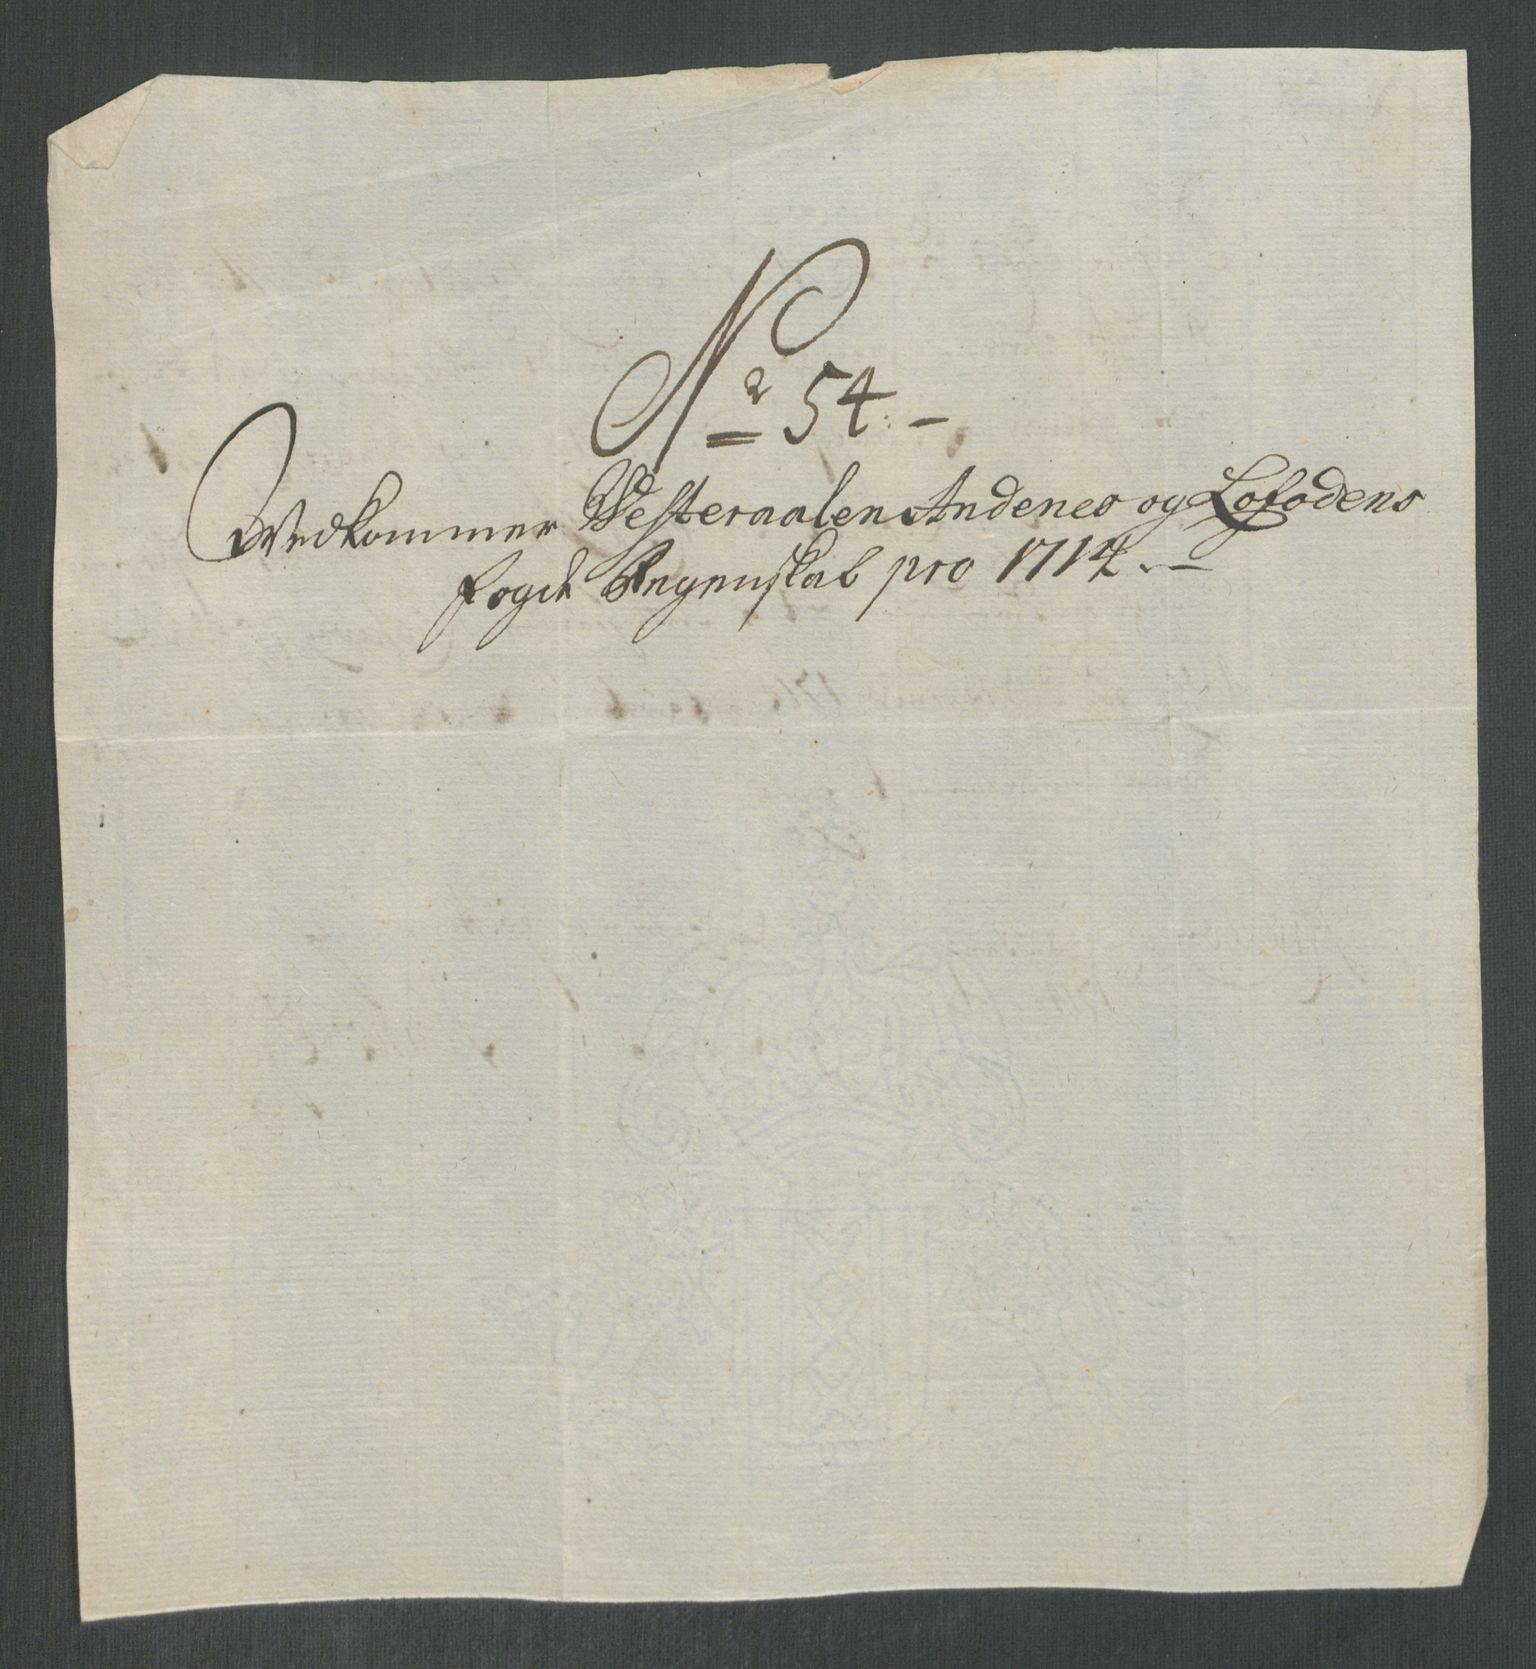 No 54. -
Wedkommer Westeraalen Andenes og Lofodens
fogde Regenskab pro 1714. -